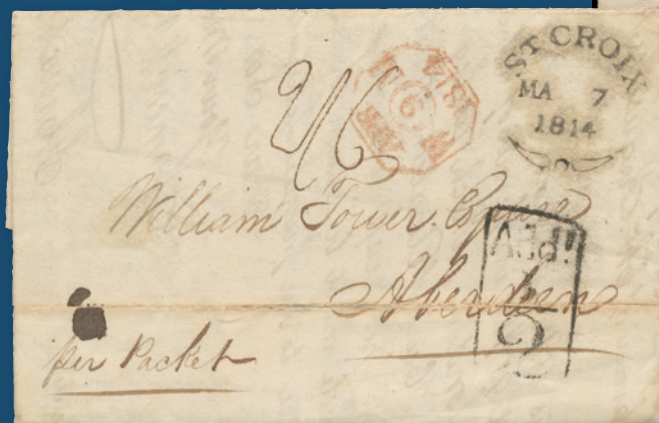 ST CROIX
MA 7
1814
2/6
William Tower Esquire
Aberdeen
Addl
per Packet